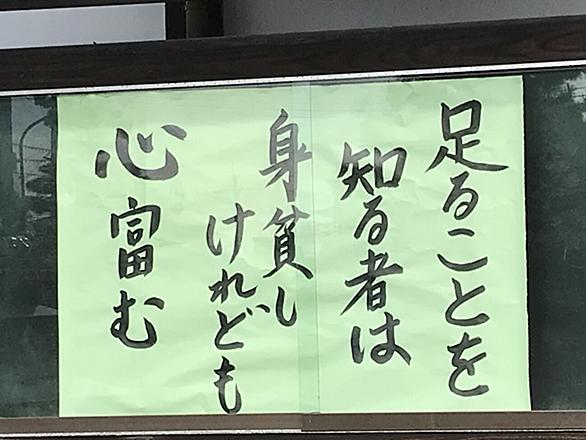 足ることを
知る者は
身貧し
けれども
心富む